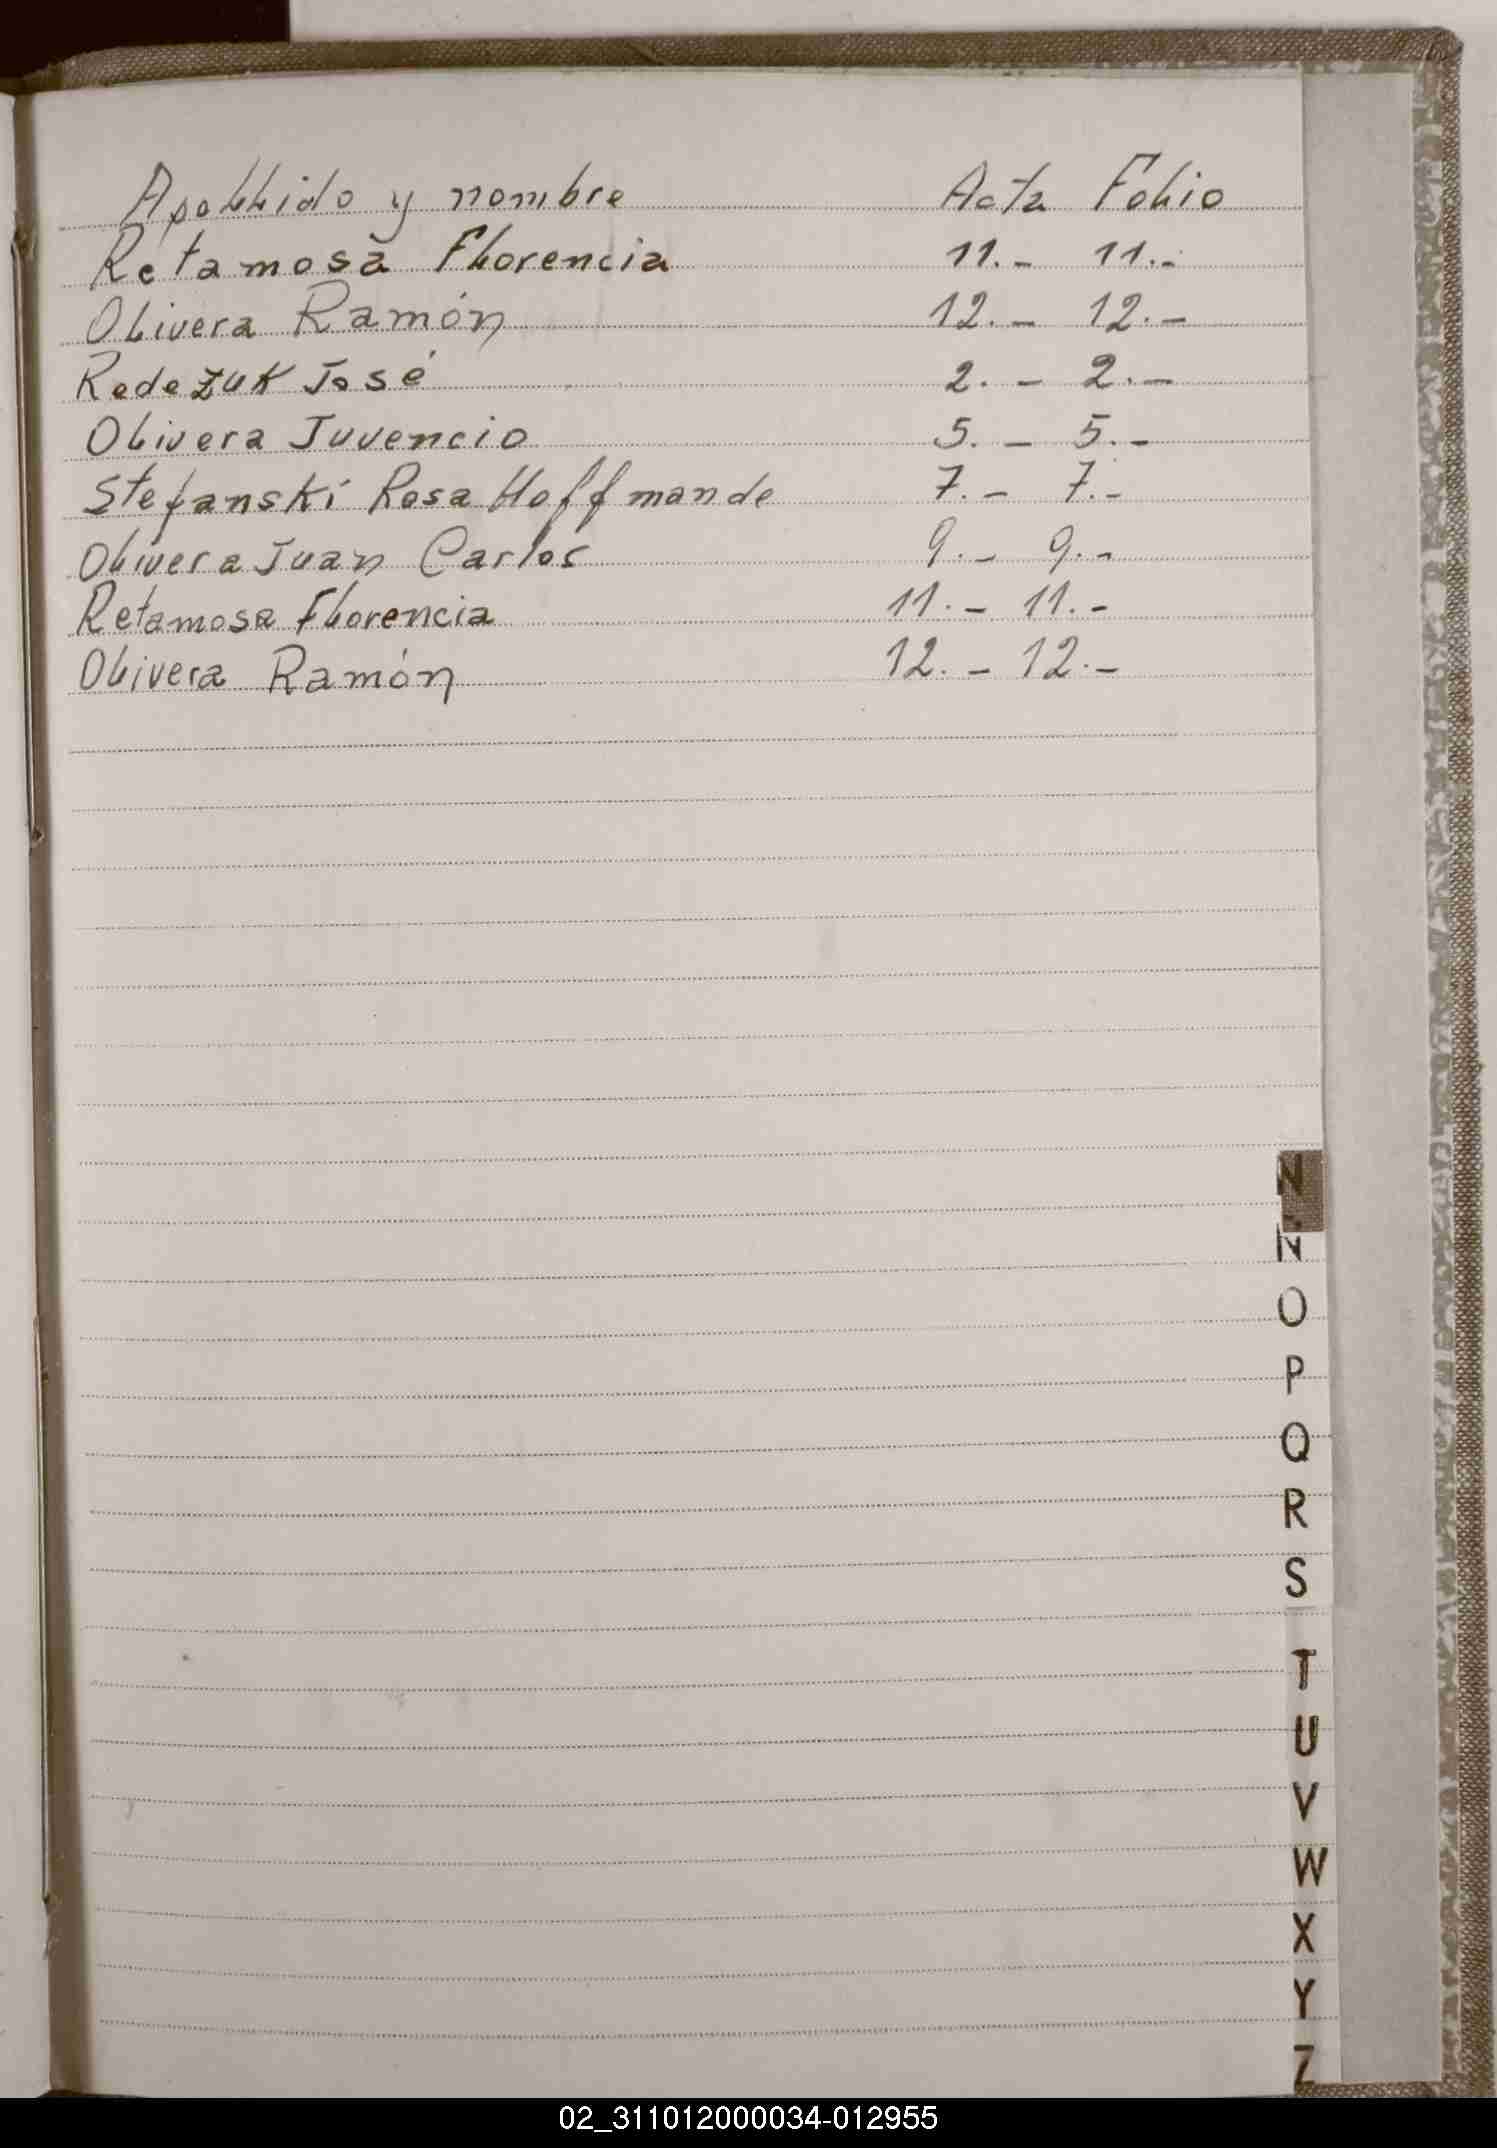 Apellido y nombre Acta Folio
Retamosa Florencia 11.- 11.-
Olivera Ramón 12.- 12.-
Redezuk José 2.- 2.-
Olivera Juvencio 5.- 5.-
Stefanski Rosa Hoffmande 7.- 7.-
Olivera Juan Carlos 9.- 9.-
Retamosa Florencia 11.- 11.-
Olivera Ramón 12.- 12.-
N
Ñ
O
P
Q
R
S
T
U
V
W
X
Y
Z
02_311012000034-012955